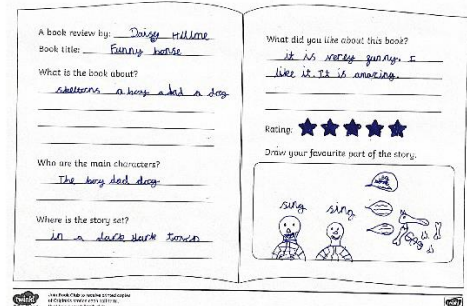 A book review by: Daisy Hillme
Book title: Funny bonse
What is the book about?
skeletons a boy a dad a dog
Who are the main characters?
The boy dad dog
Where is the story set?
in a dark dark town
What did you like about this book?
it is verey funny. I
like it. It is amazing.
Rating:
Draw your favourite part of the story.
sing sing
twinkl